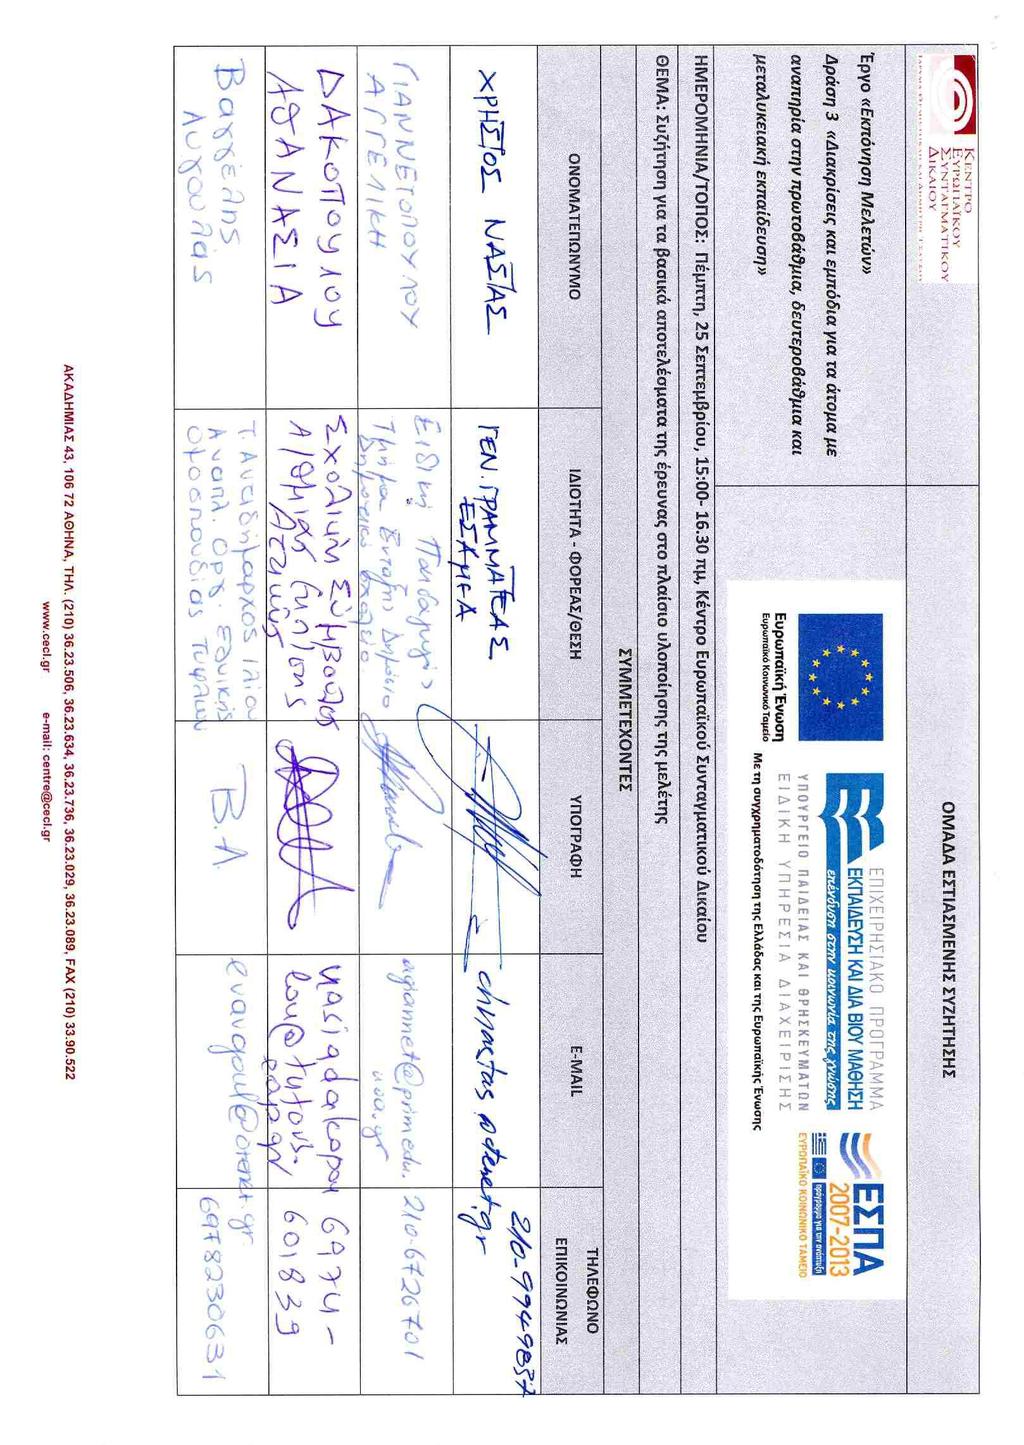 ΚΕΝΤΡΟ
ΕΥΡΩΠΑΪΚΟΥ
ΣΥΝΤΑΓΜΑΤΙΚΟΥ
ΔΙΚΑΙΟΥ
ΟΜΑΔΑ ΕΣΤΙΑΣΜΕΝΗΣ ΣΥΖΗΤΗΣΗΣ
Έργο «Εκπόνηση Μελετών»
Δράση 3 «Διακρίσεις και εμπόδια για τα άτομα με
αναπηρία στην πρωτοβάθμια, δευτεροβάθμια και
μεταλυκειακή εκπαίδευση»
Ευρωπαϊκή Ένωση
Ευρωπαϊκό Κοινωνικό Ταμείο
ΕΠΙΧΕΙΡΗΣΙΑΚΟ ΠΡΟΓΡΑΜΜΑ
ΕΚΠΑΙΔΕΥΣΗ ΚΑΙ ΔΙΑ ΒΙΟΥ ΜΑΘΗΣΗ
επένδυση στην κοινωνία της γνώσης
ΥΠΟΥΡΓΕΙΟ ΠΑΙΔΕΙΑΣ ΚΑΙ ΘΡΗΣΚΕΥΜΑΤΩΝ
ΕΙΔΙΚΗ ΥΠΗΡΕΣΙΑ ΔΙΑΧΕΙΡΙΣΗΣ
Με τη συγχρηματοδότηση της Ελλάδας και της Ευρωπαϊκής Ένωσης
ΕΣΠΑ
2007-2013
πρόγραμμα για την ανάπτυξη
ΕΥΡΩΠΑΪΚΟ ΚΟΙΝΩΝΙΚΟ ΤΑΜΕΙΟ
ΗΜΕΡΟΜΗΝΙΑ/ΤΟΠΟΣ: Πέμπτη, 25 Σεπτεμβρίου, 15:00- 16.30 πμ, Κέντρο Ευρωπαϊκού Συνταγματικού Δικαίου
ΘΕΜΑ: Συζήτηση για τα βασικά αποτελέσματα της έρευνας στο πλαίσιο υλοποίησης της μελέτης
ΣΥΜΜΕΤΕΧΟΝΤΕΣ
ΟΝΟΜΑΤΕΠΩΝΥΜΟ
ΙΔΙΟΤΗΤΑ - ΦΟΡΕΑΣ/ΘΕΣΗ
ΥΠΟΓΡΑΦΗ
E-MAIL
ΤΗΛΕΦΩΝΟ
ΕΠΙΚΟΙΝΩΝΙΑΣ
ΧΡΗΣΤΟΣ ΝΑΣΤΑΣ
ΓΕΝ. ΓΡΑΜΜΑΤΕΑΣ
ΕΣΑμεΑ
210-9949837
ΓΙΑΝΝΕΤΟΠΟΥΛΟΥ
ΑΓΓΕΛΙΚΗ
Ειδική Παιδαγωγός
Τμήμα Ένταξης Δημόσιο
Δημοτικό σχολείο
210-6726701
ΔΑΚΟΠΟΥΛΟΥ
ΑΘΑΝΑΣΙΑ
Σχολικών Σύμβουλος
Α/θμιας
Αττικής
nasiadakopou
lou@
6974-
601839
Βαγγέλης
Αυγουλάς
Τ. Αντιδήμαρχος Ιλίου
Αναπλ. Οργ. Εθνικής
Ομοσπονδίας Τυφλών
Β.Α.
evavgoul@otenet.gr
6978230631
ΑΚΑΔΗΜΙΑΣ 43, 106 72 ΑΘΗΝΑ, ΤΗΛ. (210) 36.23.506, 36.23.634, 36.23.736, 36.23.029, 36.23.089, FAX (210) 33.90.522
www.cecl.gr e-mail: centre@cecl.gr